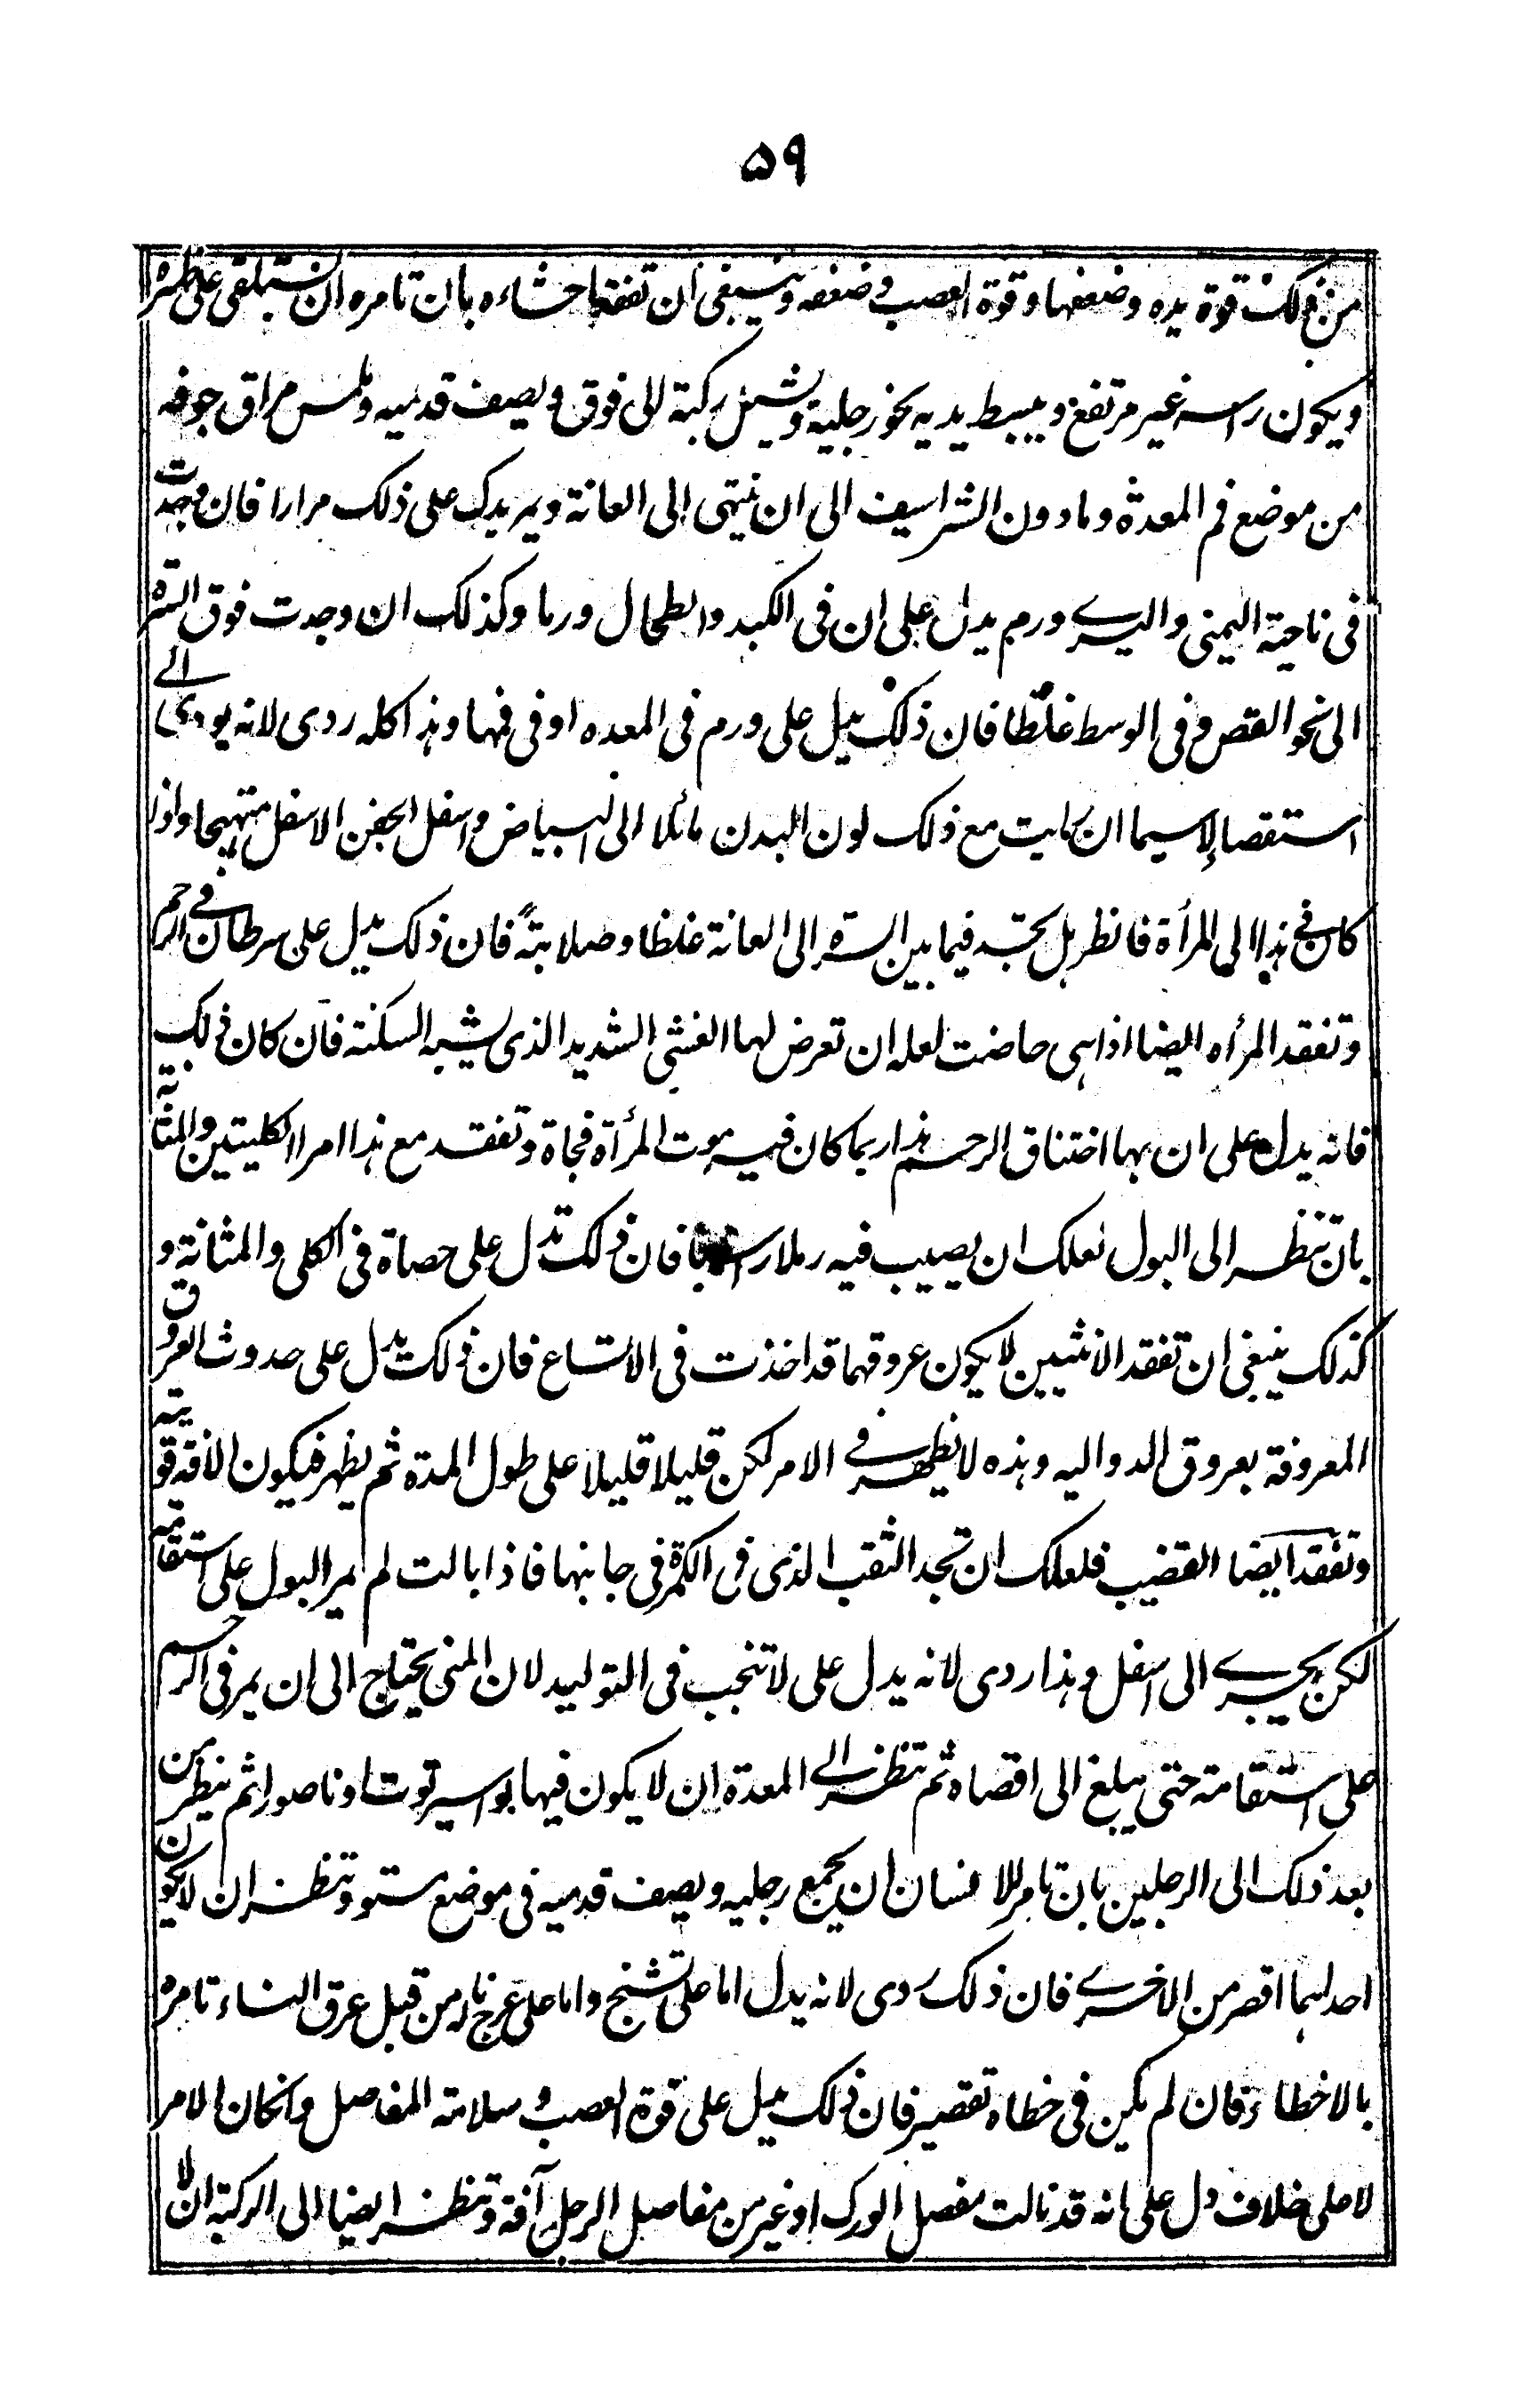 ۵۹
من ذلك قوة يده وضعفها وقوة العصب وضعفه وينبغى ان تفقد احشاءه بان تامره ان يستلقى على ظهره
ويكون راسه غير مرتفع ويبسط يديه نحو رجلية ويشيل ركبة الى فوق ويصف قدميه وتلمس مراق جوفه
من موضع فم المعدة وما دون الشراسيف الى ان ينتهى الى العانة ويمر يدك على ذلك مرارا فان وجدت
فى ناحية اليمنى واليسرى ورم يدل على ان فى الكبد والطحال ورما وكذلك ان وجدت فوق السرة
الى نحو القص وفى الوسط غلظا فان ذلك يدل على ورم فى المعده او فى فمها وهذا كله ردى لانه يودى الى
استقصا لاسيما ان رايت مع ذلك لون البدن مائلا الى البياض واسفل الجفن الاسفل متهيجا واذا
كان فى هذا الى المرأة فانظر هل تجد فيما بين السرة الى العانة غلظا وصلابتة فان ذلك يدل على سرطان فى الرحم
وتفقد المرأه ايضا اذا هى حاضت لعله ان تعرض لها الغشى الشديد الذى يشبه السكتة فان كان ذلك
فانه يدل على ان بها اختناق الرحم هذا ربما كان فيه موت المرأة فجاة وتفقد مع هذا امر الكليتين والمثانة
بان تنظر الى البول لعلك ان يصيب فيه رملا راسبا فان ذلك تدل على حصاة فى الكلى والمثانة و
كذلك ينبغى ان تفقد الانثيين لا يكون عروقهما قد اخذت فى الاتساع فان ذلك يدل على حدوث العروق
المعروفة بعروق الدواليه وهذه لا يظهر فى الامر لكن قليلا قليلا على طول المدة ثم يظهر فيكون الافة قوية
وتفقد ايضا القضيب فلعلك ان تجد الثقب الذى فى الكمرة فى جانبها فاذا بالت لم يمر البول على استقامة
لكن يجرى الى اسفل وهذا ردى لانه يدل على لا تنجب فى التوليد لان المنى يحتاج الى ان يمر فى الرحم
على استقامته حتى يبلغ الى اقصاه ثم تنظر الى المعدة ان لا يكون فيها بواسير توت او ناصور ثم ينظر من
بعد ذلك الى الرجلين بان تامر للانسان ان يجمع رجليه ويصف قدميه فى موضع مستو وتنظر ان لا يكون
احدلهما اقصر من الاخرى فان ذلك ردى لانه يدل اما على تشنج واما على عرج ناله من قبل عرق النساء تامره
بالاخطاء فان لم يكن فى خطاه تقصير فان ذلك يدل على قوة العصب وسلامته المفاصل وانكان الامر
لا على خلاف دل على انه قد نالت مفصل الورك او غير من مفاصل الرجل آفة وتنظر ايضا الى الركبة ان لا